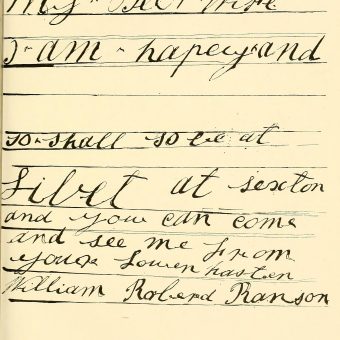 My
wife
I am hapey and
so shall so be at
Libet at sexton
and you can come
and see me from
your Loven hasten
William Roberd Ranson